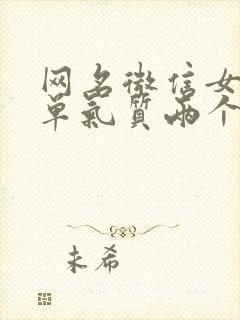 网名微信女
单气质两个
未希